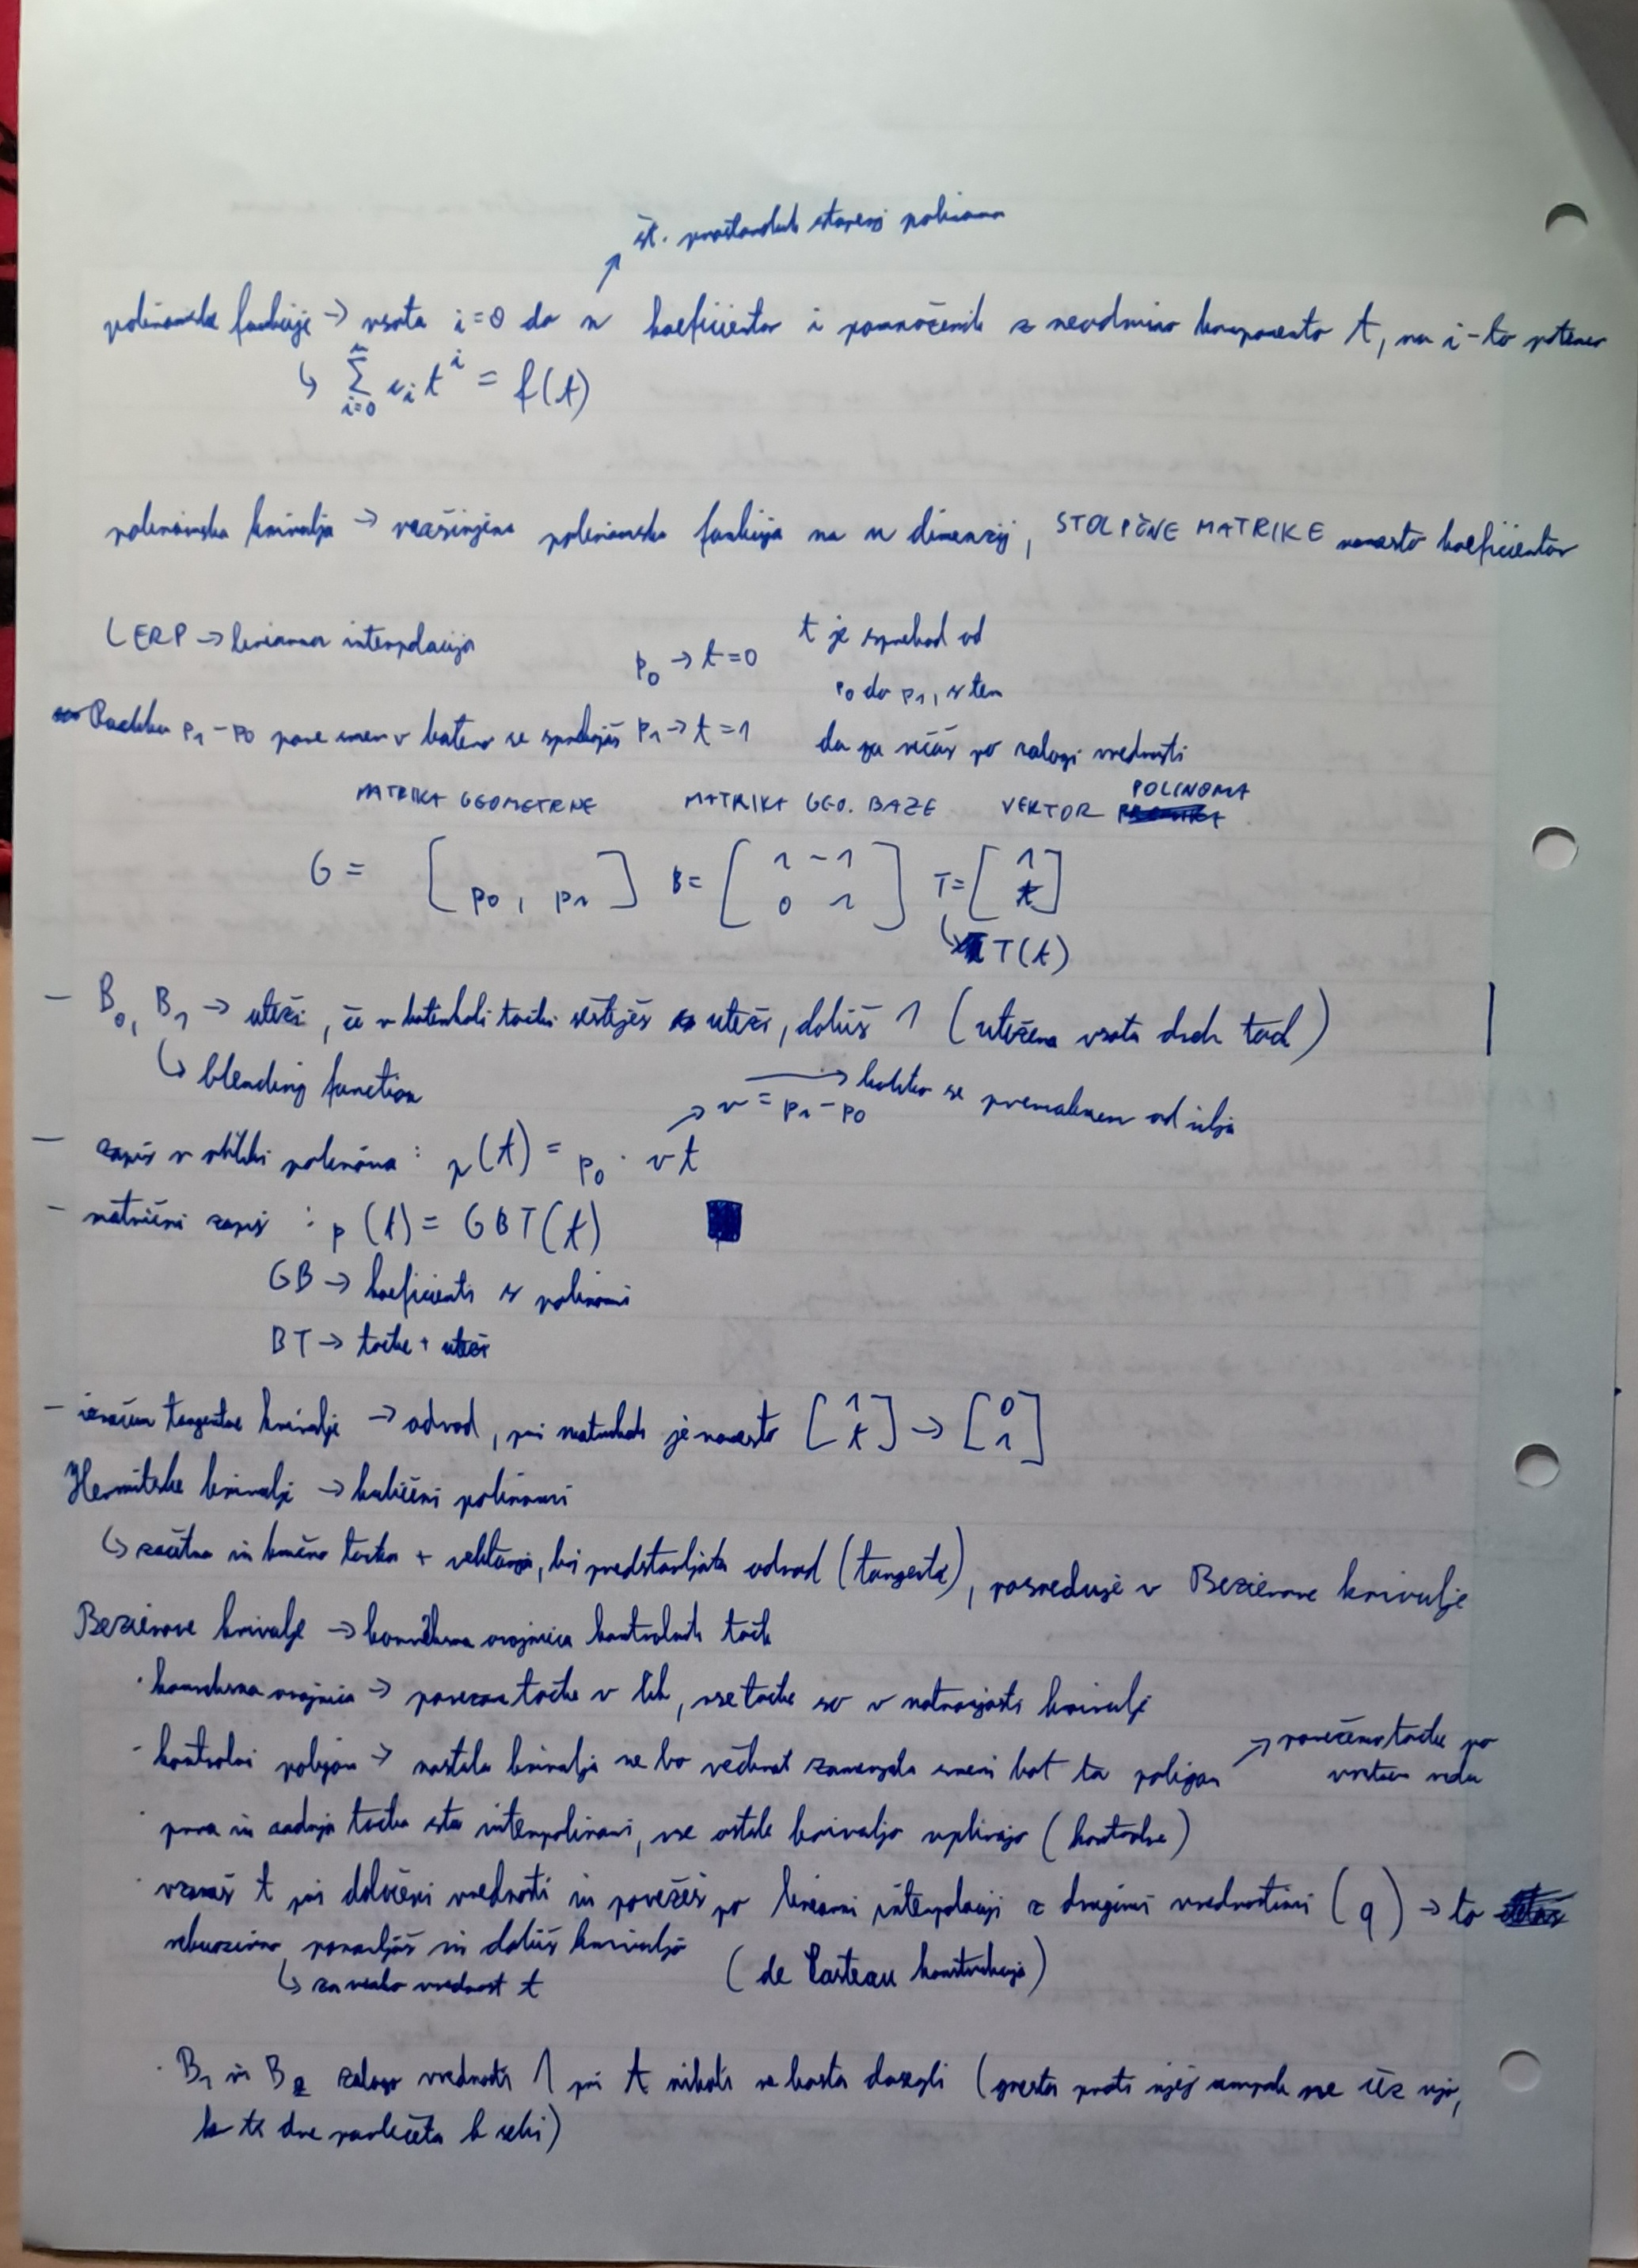 št. prostorskih stopenj polinoma
polinomske funkcije → vsota i=0 do n koeficientov i pomnoženih z neodvisno komponento t, na i-to potenco
↳ n Σ i=0 c_i t^i = f(t)
polinomska krivulja → razširjena polinomska funkcija na n dimenzij, STOLPČNE MATRIKE namesto koeficientov
LERP → linearna interpolacija
p₀ → t=0
t je sprehod od
p₀ do p₁, s tem
Razlika p₁-p₀ pove smer v katero se sprehajaš
p₁ → t=1
da ga vežeš po zalogi vrednosti
MATRIKA GEOMETRIJE MATRIKA GEO. BAZE VEKTOR POLINOMA
G = [p₀, p₁] B = [1 -1; 0 1] T = [1; t]
↳ T(t)
- B₀, B₁ → uteži, če v katerikoli točki sešteješ uteži, dobiš 1 (utežena vsota dveh točk)
↳ blending function
↗ v = p₁-p₀ → kolikor se premaknem od cilja
- zapis v obliki polinoma: p(t) = p₀ · vt
- matrični zapis: p(t) = GBT(t)
GB → koeficienti v polinomi
BT → točke + uteži
- izračun tangentne krivulje → odvod, pri matrikah je namesto [1; t] → [0; 1]
Hermitske krivulje → kubični polinomi
↳ začetna in končna točka + vektorja, ki predstavljata odvod (tangente), posreduje v Bezierove krivulje
Bezierove krivulje → konveksna ovojnica kontrolnih točk
· konveksna ovojnica → povezane točke v lik, vse točke so v notranjosti krivulje
· kontrolni poligon → nastala krivulja ne bo večkrat zamenjala smeri kot ta poligon
↗ povežemo točke po
vrstnem redu
· prva in zadnja točka sta interpolirani, vse ostale krivuljo vplivajo (kontrolne)
· vzameš t pri določeni vrednosti in povežeš po linearni interpolaciji z drugimi vrednostimi (q) → to
rekurzivno ponavljaš in dobiš krivuljo (de Casteau konstrukcija)
↳ za vsako vrednost t
· B₁ in B₂ zalogo vrednosti 1 pri t nikoli ne bosta dosegli (gresta proti njej ampak ne čez njo,
k te dve povlečeta k sebi)